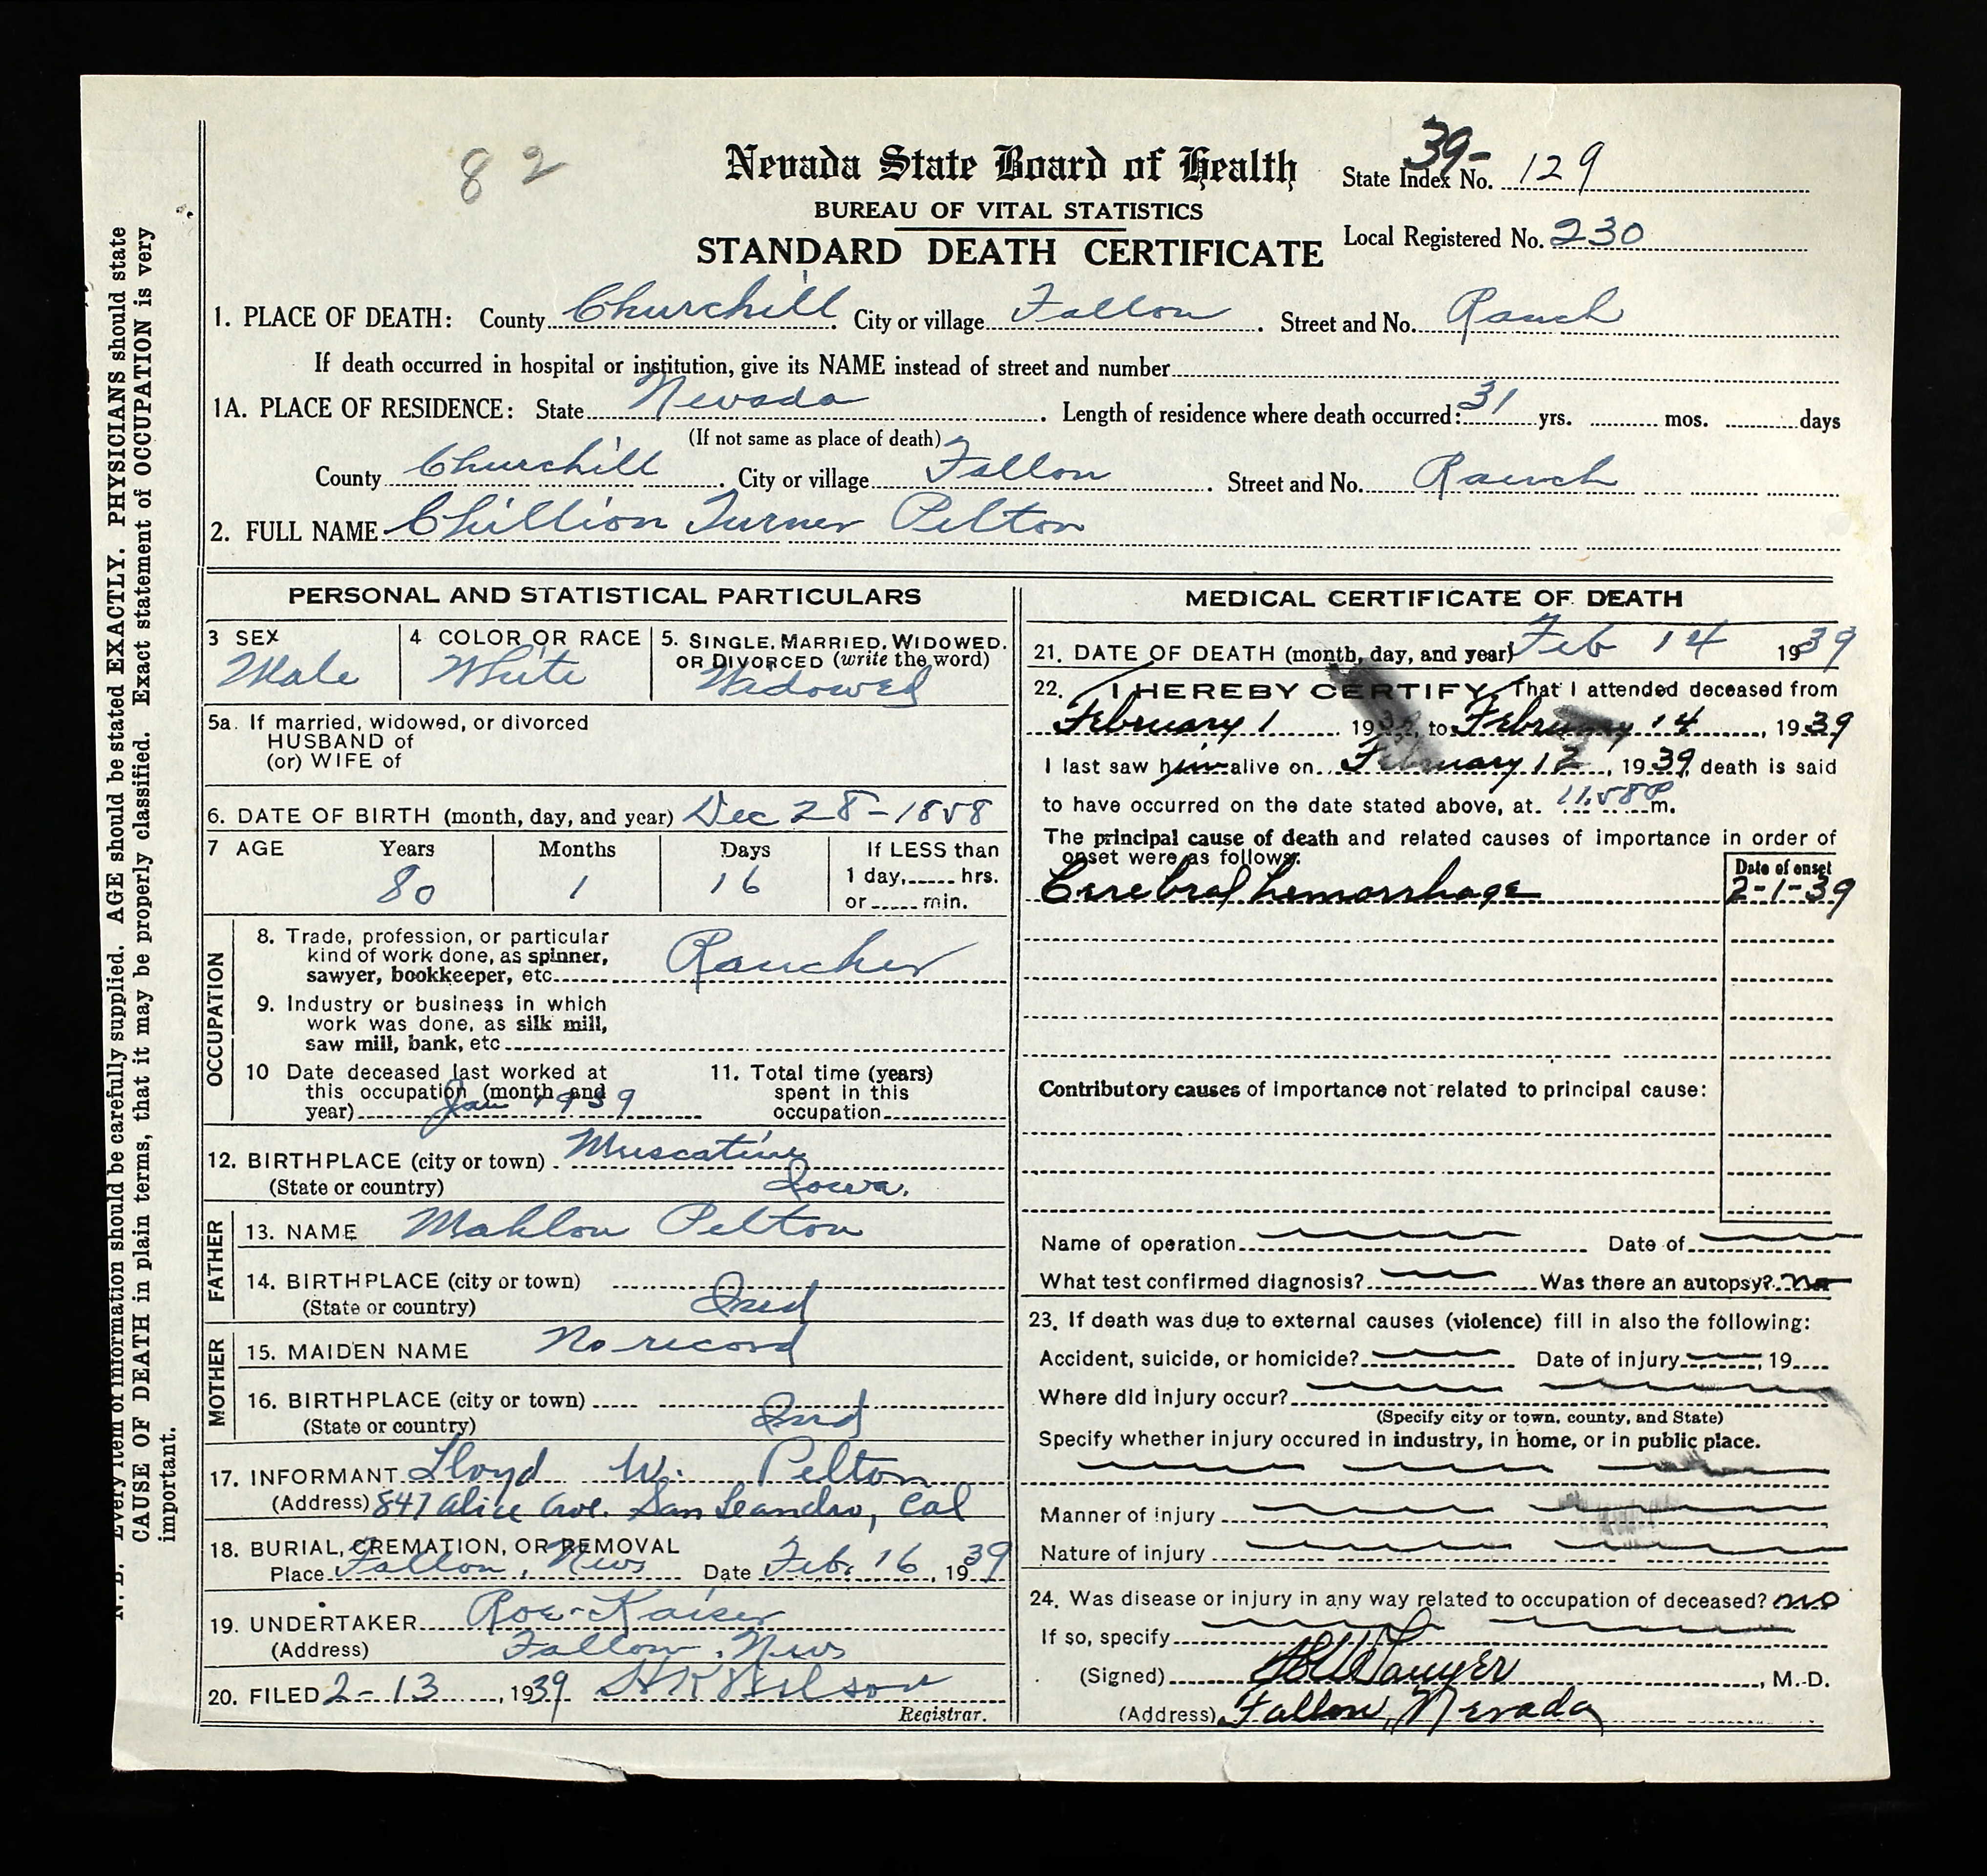 82
Nevada State Board of Health
39-
State Index No. 129
BUREAU OF VITAL STATISTICS
STANDARD DEATH CERTIFICATE
Local Registered No. 230
1. PLACE OF DEATH: County Churchill City or village Fallon Street and No. Ranch
If death occurred in hospital or institution, give its NAME instead of street and number
1A. PLACE OF RESIDENCE: State Nevada Length of residence where death occurred: 31 yrs. mos. days
(If not same as place of death)
County Churchill City or village Fallon Street and No. Ranch
2. FULL NAME Chillion Turner Pelton
PERSONAL AND STATISTICAL PARTICULARS
3 SEX Male
4 COLOR OR RACE White
5. SINGLE, MARRIED, WIDOWED, OR DIVORCED (write the word)
Widowed
5a. If married, widowed, or divorced
HUSBAND of
(or) WIFE of
6. DATE OF BIRTH (month, day, and year) Dec 28-1858
7 AGE Years Months Days If LESS than
80 1 16 1 day, hrs.
or min.
OCCUPATION
8. Trade, profession, or particular
kind of work done, as spinner,
sawyer, bookkeeper, etc. Rancher
9. Industry or business in which
work was done, as silk mill,
saw mill, bank, etc
10 Date deceased last worked at
this occupation (month and
year) Jan 1939
11. Total time (years)
spent in this
occupation
12. BIRTHPLACE (city or town) Muscatine
(State or country) Iowa.
FATHER
13. NAME Mahlon Pelton
14. BIRTHPLACE (city or town)
(State or country) Ind
MOTHER
15. MAIDEN NAME No record
16. BIRTHPLACE (city or town)
(State or country) Ind
17. INFORMANT Lloyd W. Pelton
(Address) 847 Alice Ave. San Leandro, Cal
18. BURIAL, CREMATION, OR REMOVAL
Place Fallon, Nev Date Feb. 16, 1939
19. UNDERTAKER Roe-Kaiser
(Address) Fallon, Nev
20. FILED 2-13, 1939
Registrar.
MEDICAL CERTIFICATE OF DEATH
21. DATE OF DEATH (month, day, and year) Feb 14 1939
22. I HEREBY CERTIFY, That I attended deceased from
February 1 19 , to February 14, 1939
I last saw him alive on February 12, 1939, death is said
to have occurred on the date stated above, at 11.58 P m.
The principal cause of death and related causes of importance in order of
onset were as follows:
Date of onset
Cerebral hemorrhage 2-1-39
Contributory causes of importance not related to principal cause:
Name of operation Date of
What test confirmed diagnosis? Was there an autopsy? no
23. If death was due to external causes (violence) fill in also the following:
Accident, suicide, or homicide? Date of injury , 19
Where did injury occur?
(Specify city or town, county, and State)
Specify whether injury occured in industry, in home, or in public place.
Manner of injury
Nature of injury
24. Was disease or injury in any way related to occupation of deceased? no
If so, specify
(Signed) Sawyer, M.D.
(Address) Fallon, Nevada
N. B. Every item of information should be carefully supplied. AGE should be stated EXACTLY. PHYSICIANS should state
CAUSE OF DEATH in plain terms, that it may be properly classified. Exact statement of OCCUPATION is very
important.